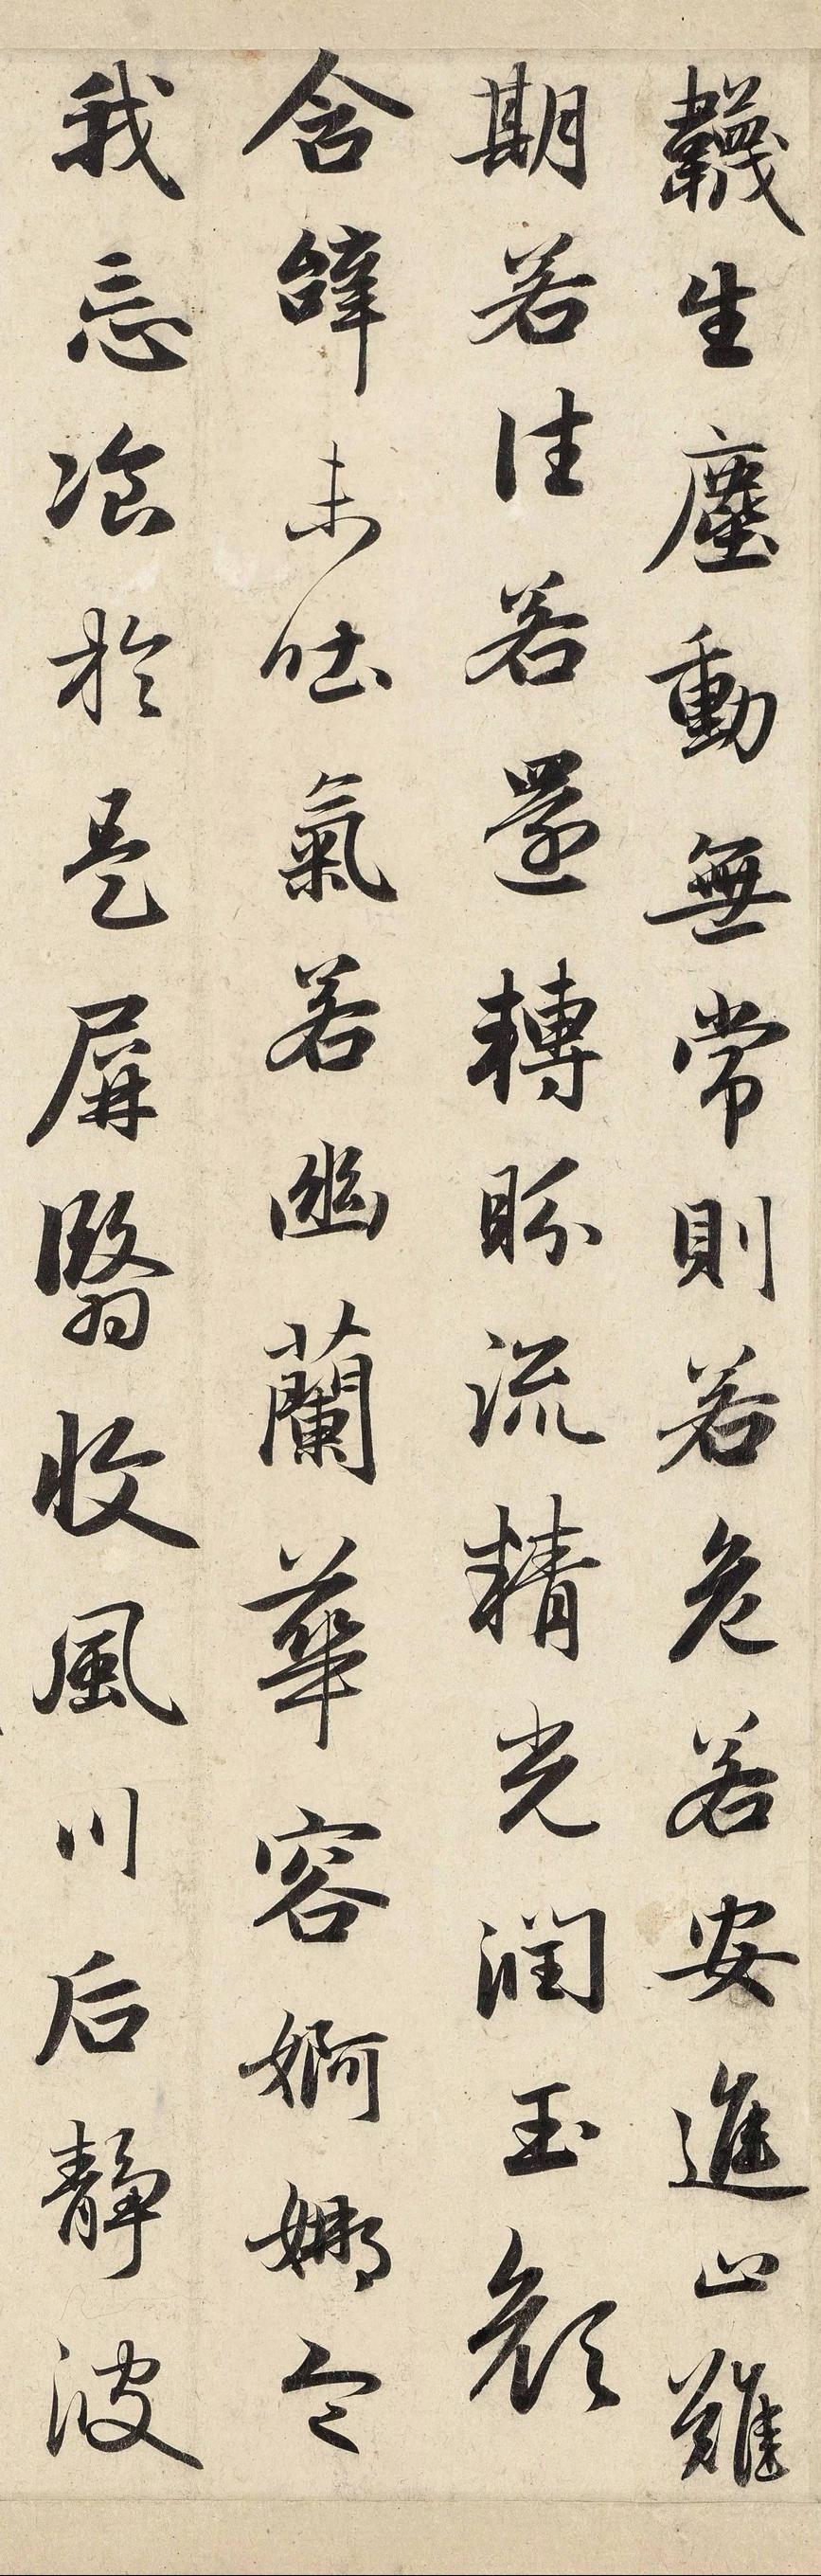 韈生塵動無常則若危若安進止難
期若往若還轉眄流精光潤玉顏
含辭未吐氣若幽蘭華容婀娜令
我忘飡於是屏翳收風川后靜波